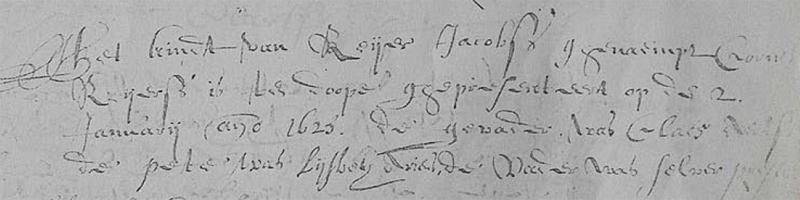 Het kindt van Reijer Jacobss ggenaempt
Reijerss is ten doope ggepresenteert op de 2.
Januarij Año 1623. de gevader was Claes
de pete was Lijsbeth de Vader was selver